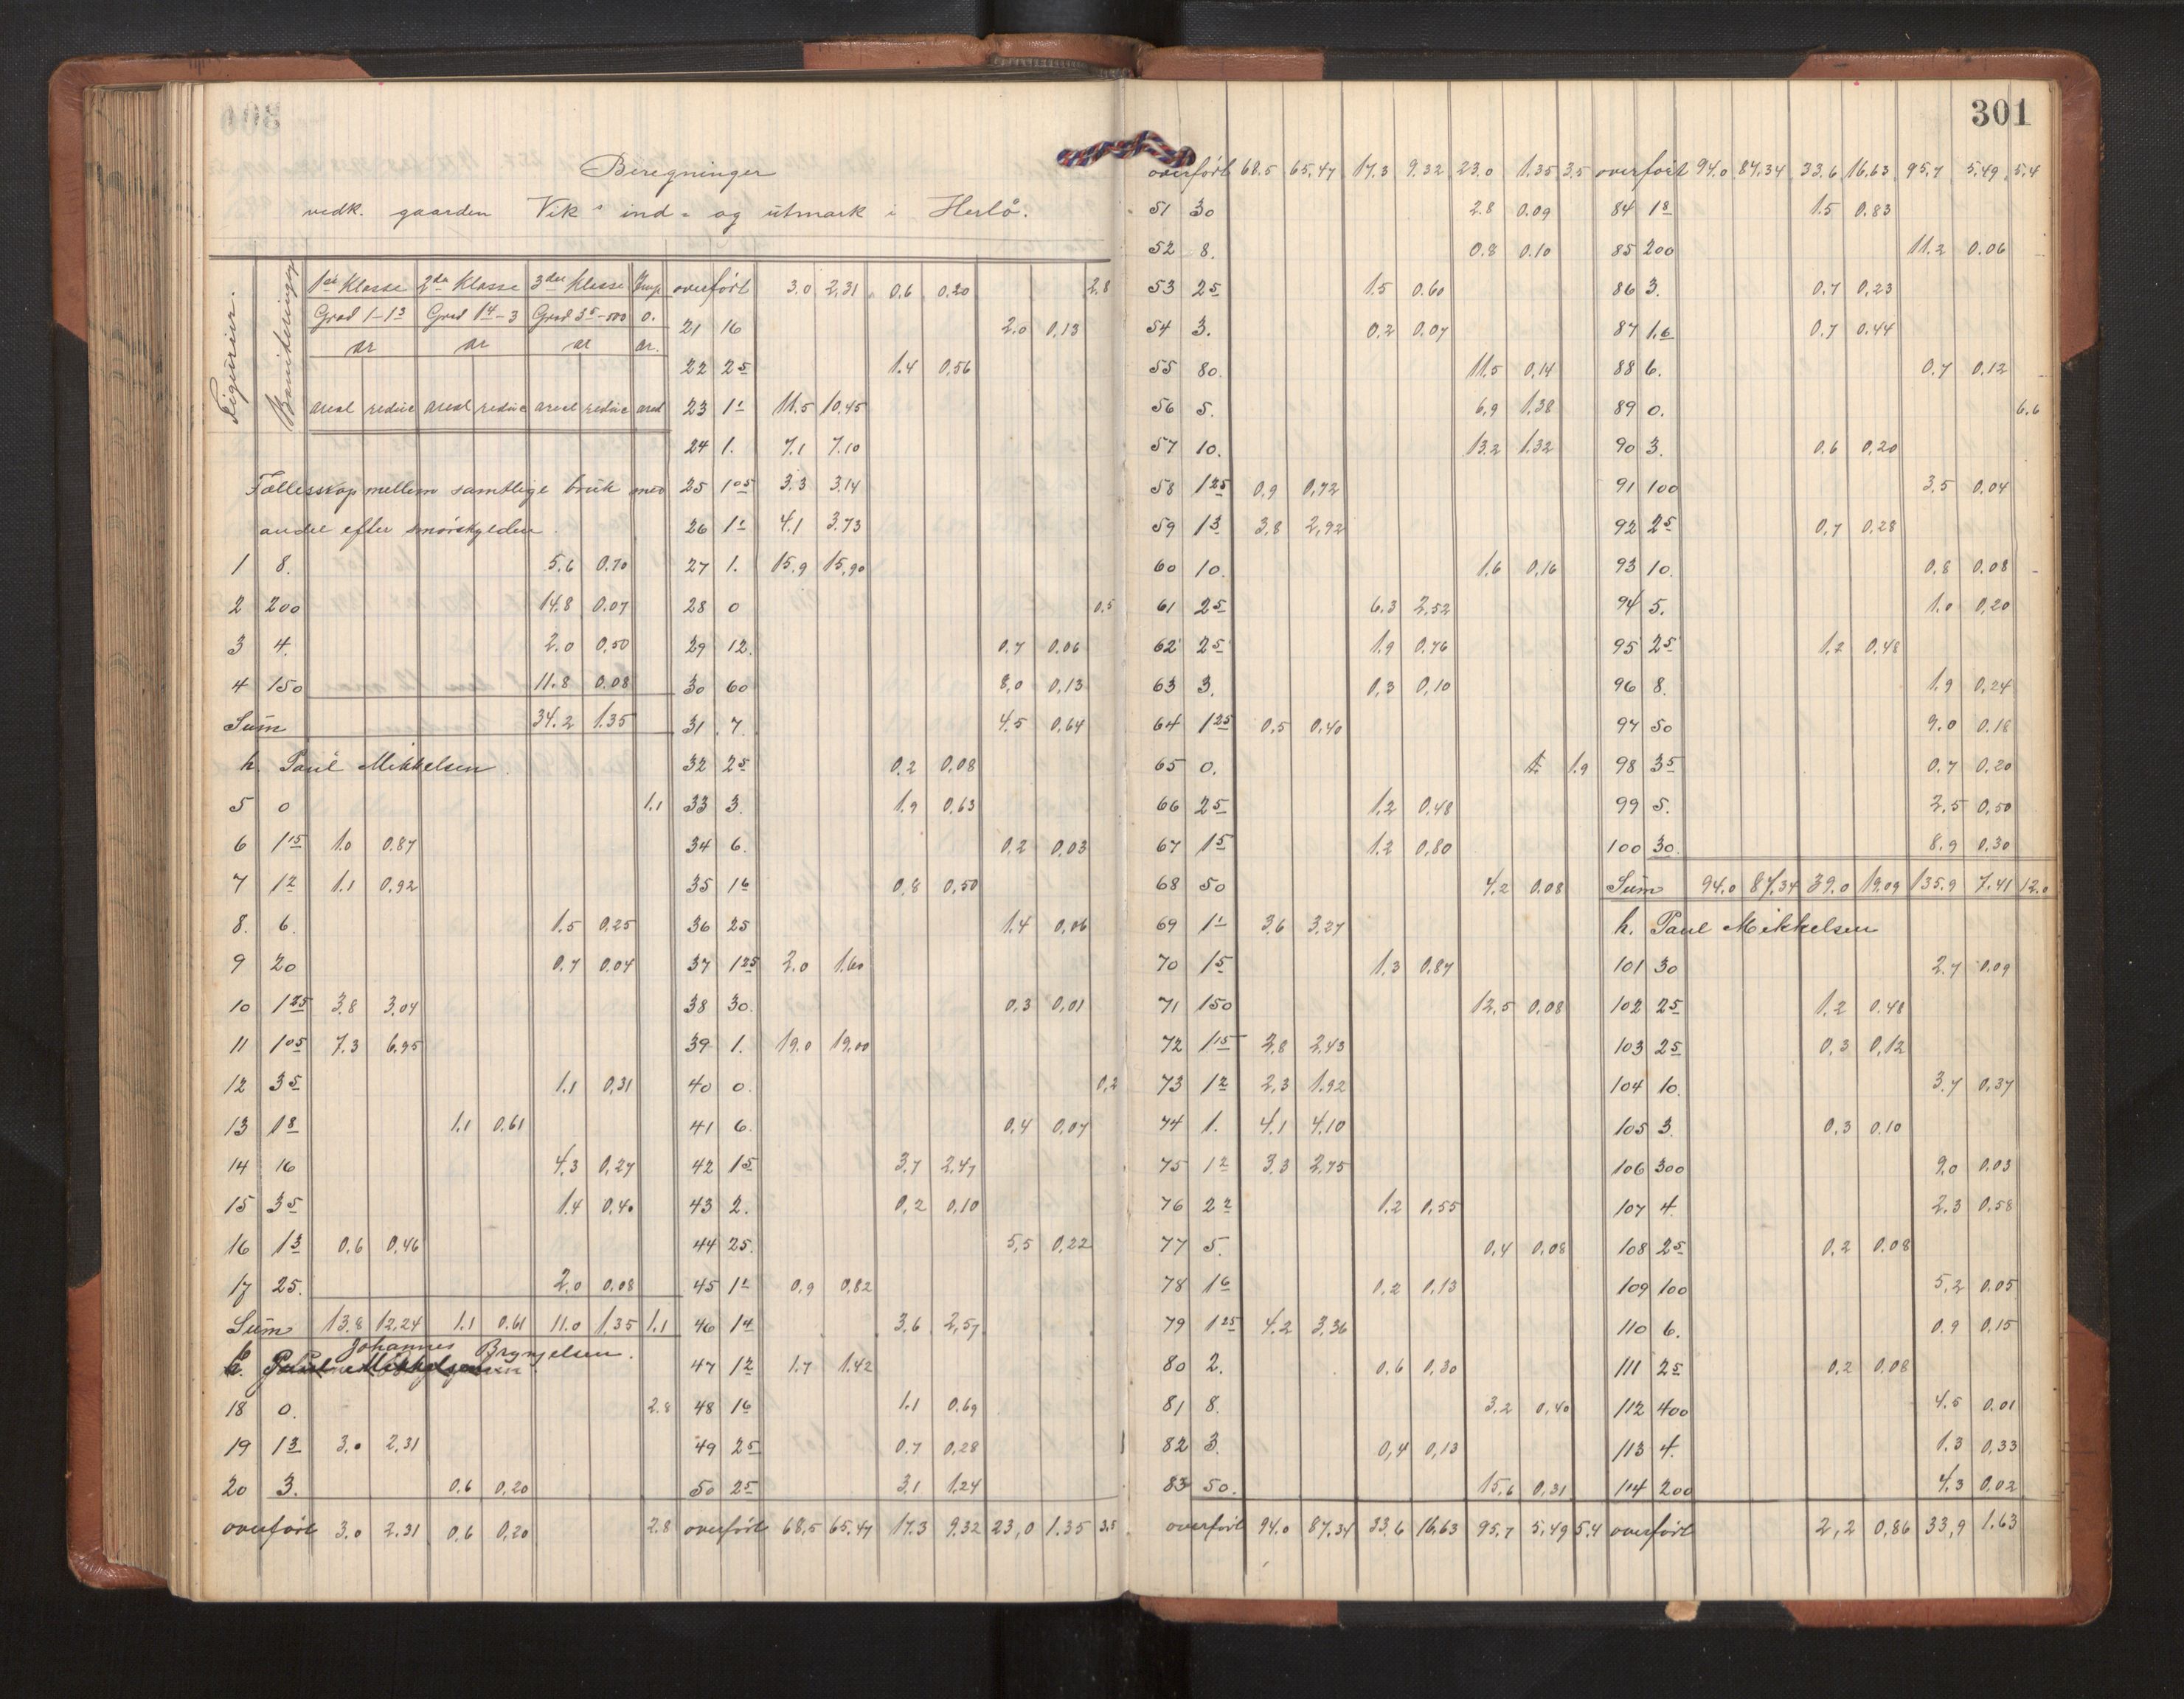 301
Beregninger
vedk. gaarden Vik's ind- og utmark i Herlö.
Figurier. Boniteringer 1ste Klasse 2den Klasse 3die Klasse Imp.
Grad 1-1³ Grad 1⁴-3 Grad 3⁵-500 0.
ar ar ar ar.
areal reduc areal reduc areal reduc areal
Fællesskap mellem samtlige bruk med
andel efter smörskylden.
1 8. 5.6 0.70
2 200 14.8 0.07
3 4. 2.0 0.50
4 150 11.8 0.08
Sum 34.2 1.35
h. Paul Mikkelsen.
5 0 1.1
6 1¹⁵ 1.0 0.87
7 1² 1.1 0.92
8. 6. 1.5 0.25
9 20 0.7 0.04
10 1²⁵ 3.8 3.04
11 1⁰⁵ 7.3 6.95
12 3⁵ 1.1 0.31
13 1⁸ 1.1 0.61
14 16 4.3 0.27
15 3⁵ 1.4 0.40
16 1³ 0.6 0.46
17 25. 2.0 0.08
Sum 13.8 12.24 1.1 0.61 11.0 1.35 1.1
Johannes Brynjelsen.
18 0. 2.8
19 1³ 3.0 2.31
20 3. 0.6 0.20
overfört 3.0 2.31 0.6 0.20 2.8
overfört 3.0 2.31 0.6 0.20 2.8
21 16 2.0 0.13
22 2⁵ 1.4 0.56
23 1¹ 11.5 10.45
24 1. 7.1 7.10
25 1⁰⁵ 3.3 3.14
26 1¹ 4.1 3.73
27 1. 15.9 15.90
28 0 0.5
29 12. 0.7 0.06
30 60 8.0 0.13
31 7. 4.5 0.64
32 2⁵ 0.2 0.08
33 3. 1.9 0.63
34 6. 0.2 0.03
35 1⁶ 0.8 0.50
36 25 1.4 0.06
37 1²⁵ 2.0 1.60
38 30. 0.3 0.01
39 1. 19.0 19.00
40 0. 0.2
41 6. 0.4 0.07
42 1⁵ 3.7 2.47
43 2. 0.2 0.10
44 25. 5.5 0.22
45 1¹ 0.9 0.82
46 1⁴ 3.6 2.57
47 1² 1.7 1.42
48 1⁶ 1.1 0.69
49 2⁵ 0.7 0.28
50 2⁵ 3.1 1.24
overfört 68.5 65.47 17.3 9.32 23.0 1.35 3.5
overfört 68.5 65.47 17.3 9.32 23.0 1.35 3.5
51 30 2.8 0.09
52 8. 0.8 0.10
53 2⁵ 1.5 0.60
54 3. 0.2 0.07
55 80. 11.5 0.14
56 5. 6.9 1.38
57 10. 13.2 1.32
58 1²⁵ 0.9 0.72
59 1³ 3.8 2.92
60 10. 1.6 0.16
61 2⁵ 6.3 2.52
62 2⁵ 1.9 0.76
63 3. 0.3 0.10
64 1²⁵ 0.5 0.40
65 0. 1.9
66 2⁵ 1.2 0.48
67 1⁵ 1.2 0.80
68 50 4.2 0.08
69 1¹ 3.6 3.27
70 1⁵ 1.3 0.87
71 150 12.5 0.08
72 1¹⁵ 2.8 2.43
73 1² 2.3 1.92
74 1. 4.1 4.10
75 1² 3.3 2.75
76 2² 1.2 0.55
77 5. 0.4 0.08
78 1⁶ 0.2 0.13
79 1²⁵ 4.2 3.36
80 2. 0.6 0.30
81 8. 3.2 0.40
82 3. 0.4 0.13
83 50. 15.6 0.31
overfört 94.0 87.34 33.6 16.63 95.7 5.49 5.4
overfört 94.0 87.34 33.6 16.63 95.7 5.49 5.4
84 1⁸ 1.5 0.83
85 200 11.2 0.06
86 3. 0.7 0.23
87 1.⁶ 0.7 0.44
88 6. 0.7 0.12
89 0. 6.6
90 3. 0.6 0.20
91 100 3.5 0.04
92 2⁵ 0.7 0.28
93 10. 0.8 0.08
94 5. 1.0 0.20
95 2⁵ 1.2 0.48
96 8. 1.9 0.24
97 50 9.0 0.18
98 3⁵ 0.7 0.20
99 5. 2.5 0.50
100 30. 8.9 0.30
Sum 94.0 87.34 39.0 19.09 135.9 7.41 12.0
h. Paul Mikkelsen
101 30 2.7 0.09
102 2⁵ 1.2 0.48
103 2⁵ 0.3 0.12
104 10. 3.7 0.37
105 3. 0.3 0.10
106 300 9.0 0.03
107 4. 2.3 0.58
108 2⁵ 0.2 0.08
109 100 5.2 0.05
110 6. 0.9 0.15
111 2⁵ 0.2 0.08
112 400 4.5 0.01
113 4. 1.3 0.33
114 200 4.3 0.02
overfört 2.2 0.86 33.9 1.63